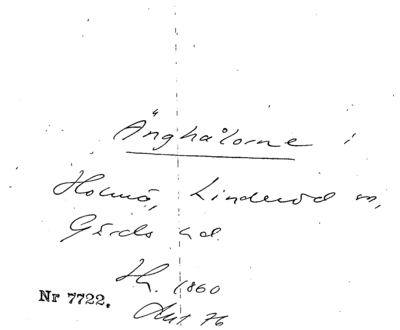 Änghålorne i
Holmö, Linderöd sn,
Gärds hd.
Hg. 1860
Nr 7722.
Akt. 76